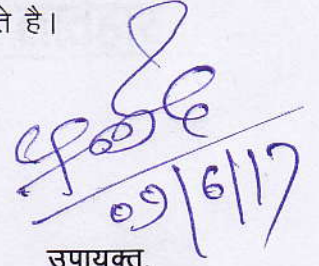 ते है।
09/6/17
उपायुक्त